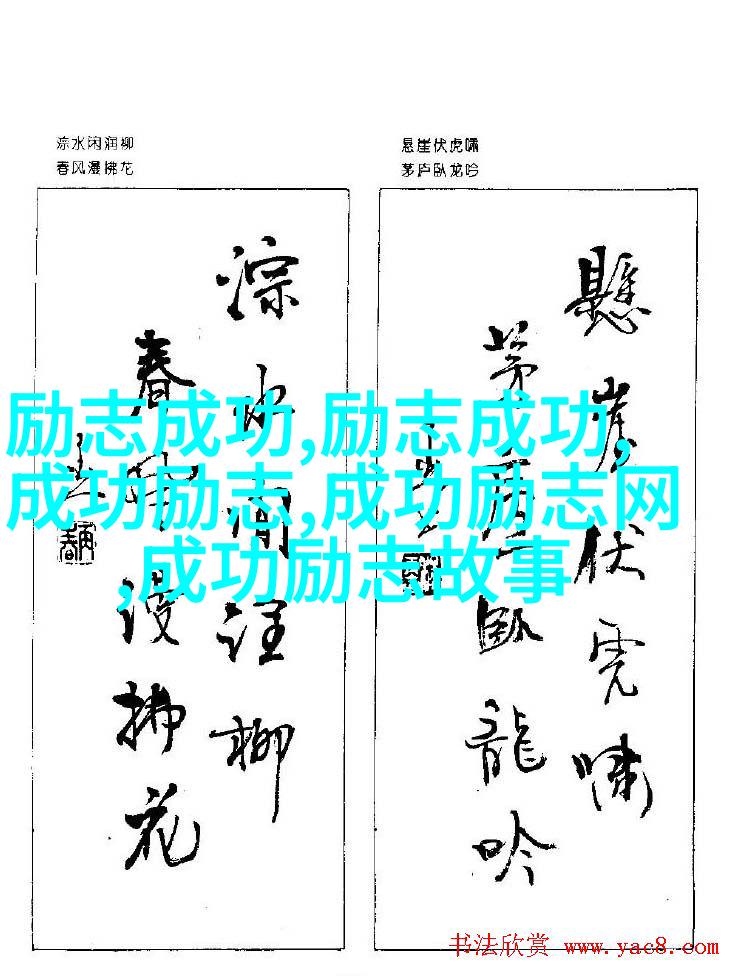 淙水闲润柳
春风漫拂花
悬崖伏虎啸
茅庐卧龙吟
淙水闲润柳
春风漫拂花
懸崖伏虎嘯
茅庐卧龍吟
励志成功,励志成功,
成功励志,成功励志网
,成功励志故事
书法欣赏 www.yac8.com